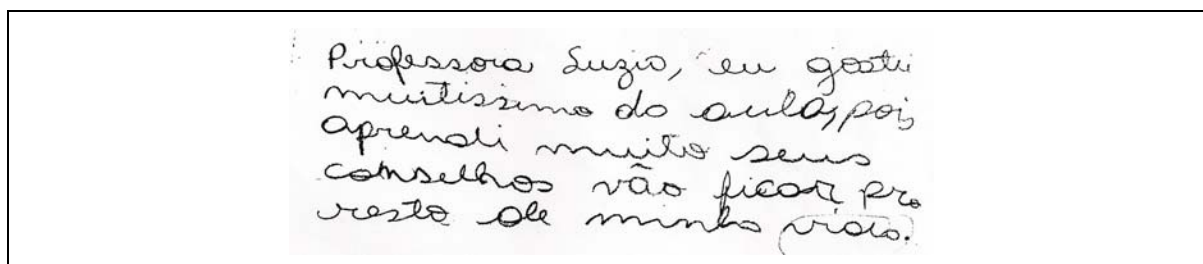 Professora Suzia, eu gostei
muitissimo da aula, pois
aprendi muito seus
conselhos vão ficar pro
resto de minha vida.